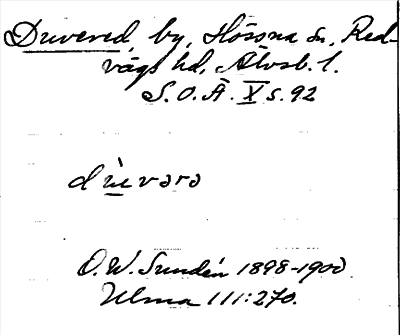 Duvered, by, Hössna sn, Red-
vägs hd, Älvsb. l.
S.O.Ä. X s. 92
d ù vərə
O. W. Sundén 1898-1900
Ulma 111:270.